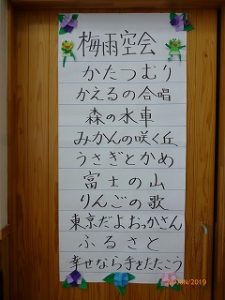 梅雨空会
かたつむり
かえるの合唱
森の水車
みかんの咲く丘
うさぎとかめ
富士の山
りんごの歌
東京だよおっかさん
ふるさと
幸せなら手をたたこう